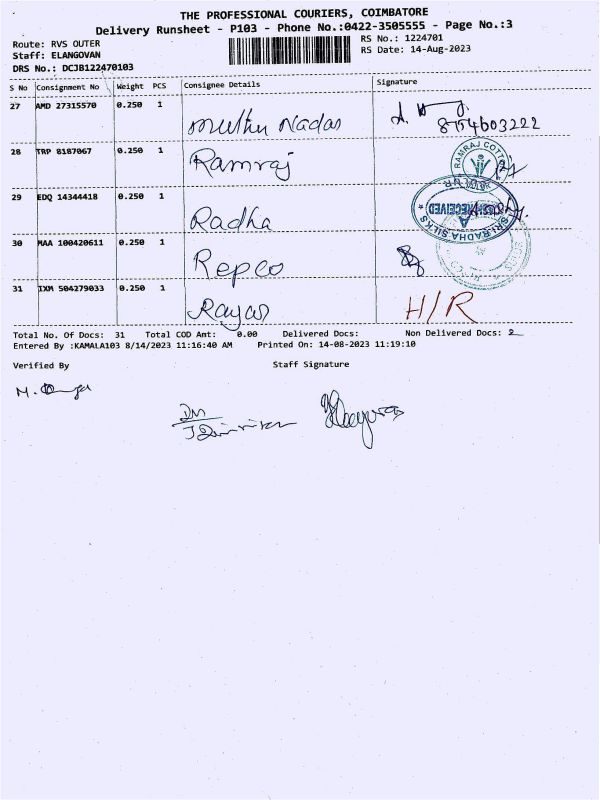 THE PROFESSIONAL COURIERS, COIMBATORE
Delivery Runsheet - P103 - Phone No.:0422-3505555 - Page No.:3
Route: RVS OUTER
Staff: ELANGOVAN
DRS No.: DCJB122470103
RS No.: 1224701
RS Date: 14-Aug-2023
S No Consignment No Weight PCS Consignee Details Signature
27 AMD 27315570 0.250 1 Muthu Nadar
8754603222
28 TRP 8187067 0.250 1 Ramraj
RAMRAJ COTT
29 EDQ 14344418 0.250 1 Radha
SRI RADHA SILKS
RECEIVED
30 MAA 100420611 0.250 1 Repco
31 IXM 504279033 0.250 1 Rayar H/R
Total No. Of Docs: 31 Total COD Amt: 0.00 Delivered Docs: Non Delivered Docs: 2
Entered By :KAMALA103 8/14/2023 11:16:40 AM Printed On: 14-08-2023 11:19:10
Verified By Staff Signature